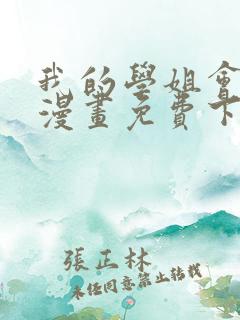 我的學姐會
漫畫免費下
張正林
未經同意禁止轉載